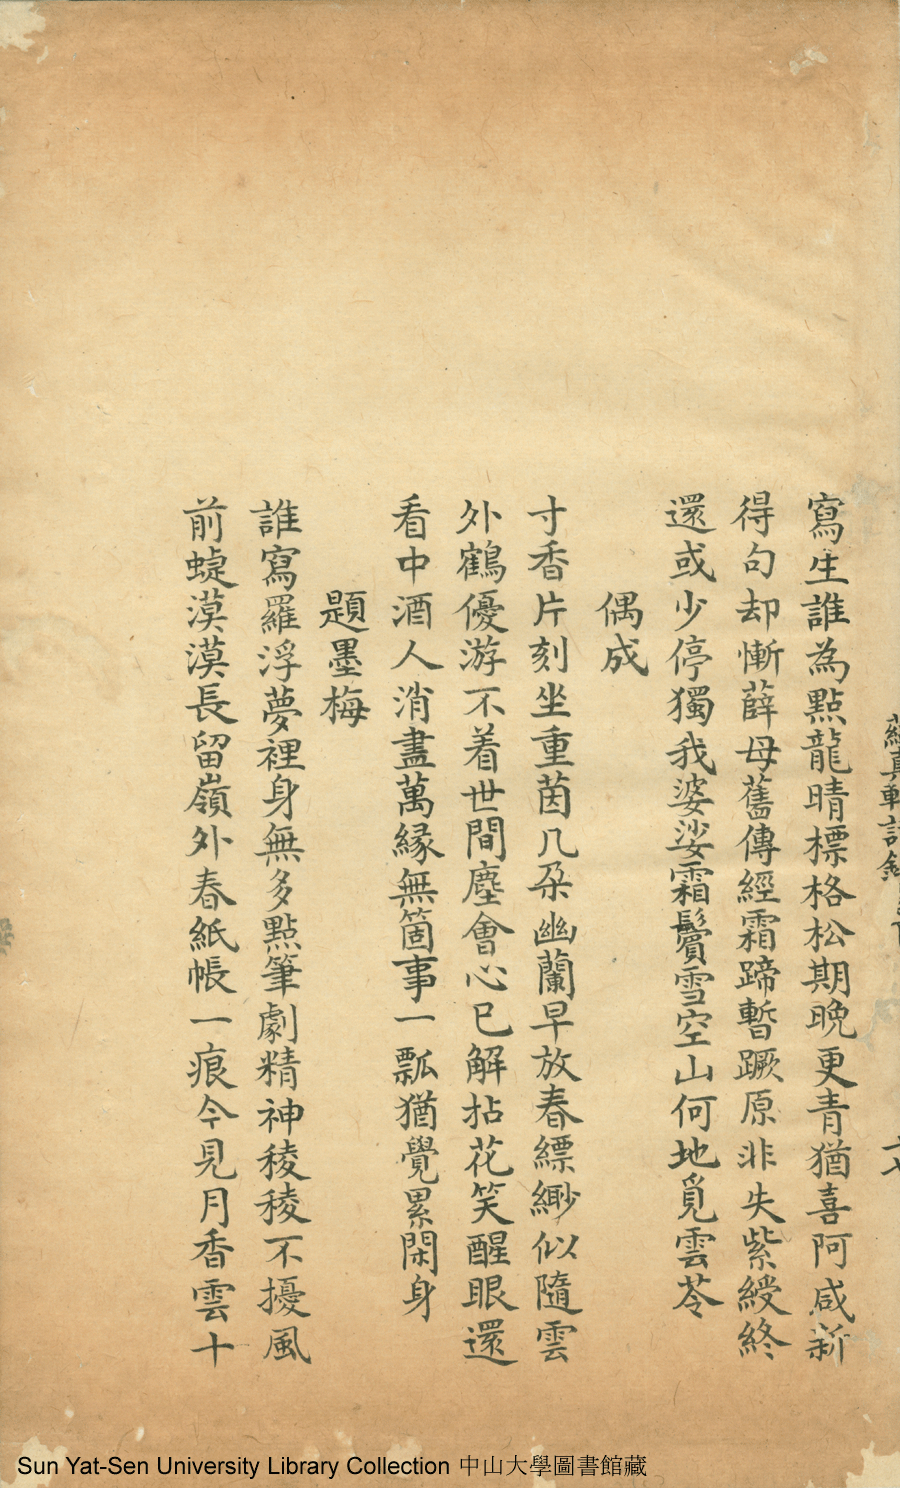 寫生誰為點龍晴標格松期晚更青猶喜阿咸新
得句却慚薛母舊傳經霜蹄暫蹶原非失紫綬終
還或少停獨我婆娑霜鬢雪空山何地覓雲苓
偶成
寸香片刻坐重茵几朶幽蘭早放春縹緲似隨雲
外鶴優游不着世間塵會心已解拈花笑醒眼還
看中酒人消盡萬緣無箇事一瓢猶覺累閑身
題墨梅
誰寫羅浮夢裡身無多點筆劇精神稜稜不擾風
前蜨漠漠長留嶺外春紙帳一痕今見月香雲十
Sun Yat-Sen University Library Collection 中山大學圖書館藏